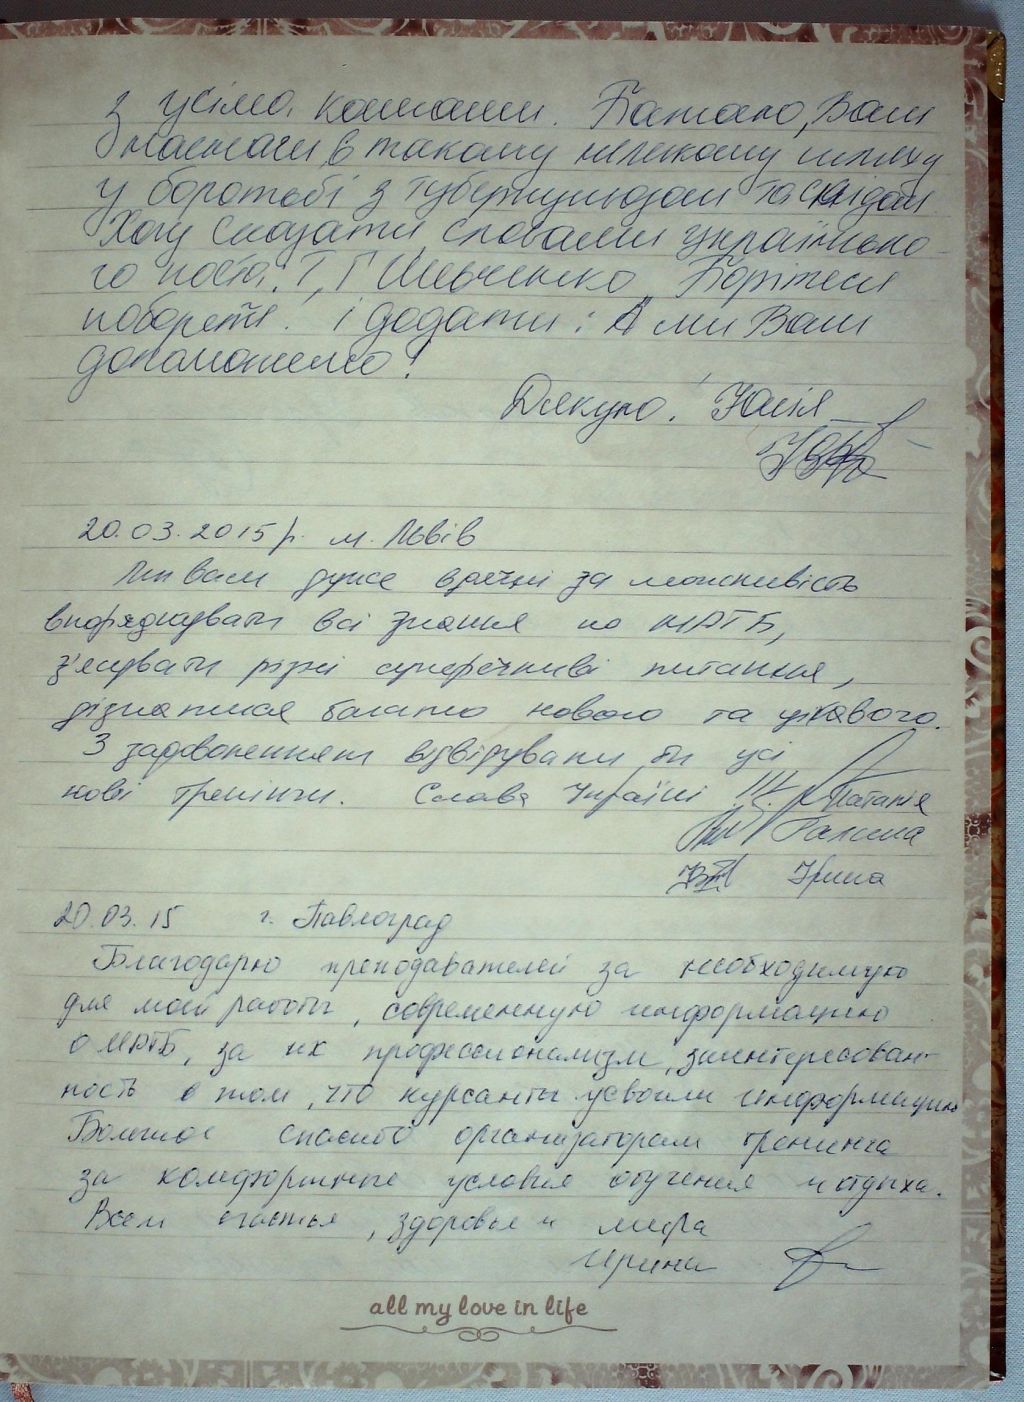 з усіма. Бажаю, Вам
наснаги, в такому нелегкому шляху
у боротьбі з туберкульозом та снідом
Хочу сказати словами українсько-
го поета. Т, Г Шевченко Борітеся
поборете! і додати: А ми Вам
допоможемо!
Дякую! Юлія
20.03.2015р. м. Львів
Ми Вам дуже вдячні за можливість
впорядкувати всі знання по МРТБ,
з'ясувати різні суперечливі питання,
дізнатися багато нового та цікавого.
З задоволенням відвідували би усі
нові тренінги. Слава Україні !!! Наталія
Галина
Ірина
20.03.15 г. Павлоград
Благодарю преподавателей за необходимую
для моей работы, современную информацию
о МРТБ, за их профессионализм, заинтересован-
ность в том, что курсанты усвоили информацию
Большое спасибо организаторам тренинга
за комфортные условия обучения и отдыха.
Всем счастья, здоровья и мира
Ирина
all my love in life